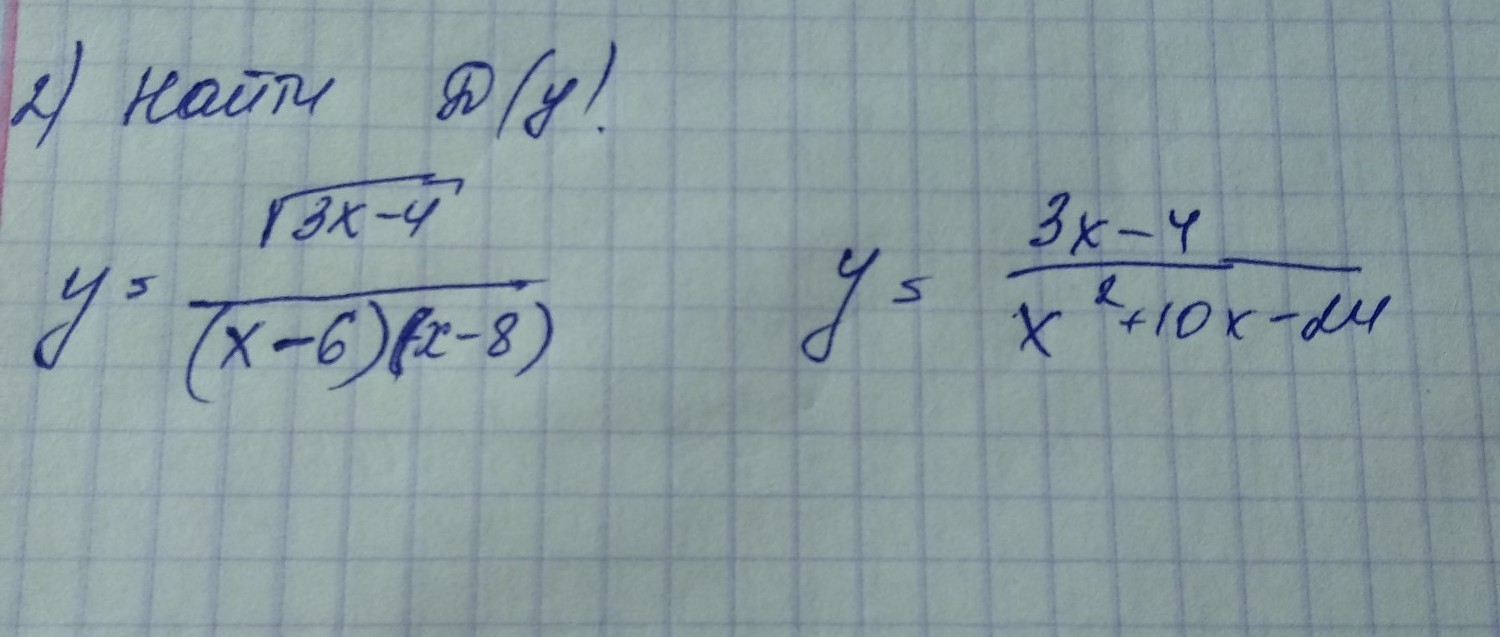 2) Найти D(y).
y = √(3x-4) / (x-6)(x-8)
y = 3x-4 / x²+10x-24